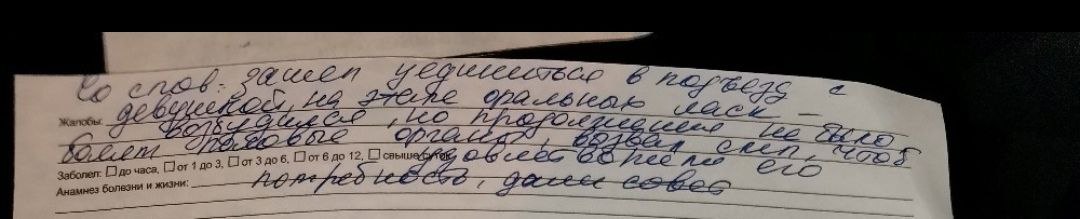 Со слов: зашел уединиться в подъезд с
девушкой, на этапе оральных ласк –
Жалобы: возбудился, но продолжения не было
болят половые органы, вызвал СМП, чтоб
Заболел: □ до часа, □ от 1 до 3, □ от 3 до 6, □ от 6 до 12, □ свыше суток удовлетворили его
Анамнез болезни и жизни: потребность, дали совет